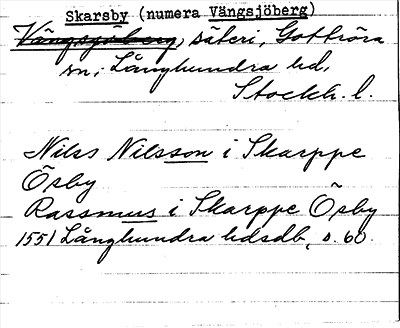 Skarsby (numera Vängsjöberg)
Vängsjöberg, säteri, Gottröra
sn; Långhundra hd,
Stockh. l.
Nilss Nilsson i Skarppe
Ösby
Rassmus i Skarppe Ösby
1551 Långhundra hdsdb, s. 60.